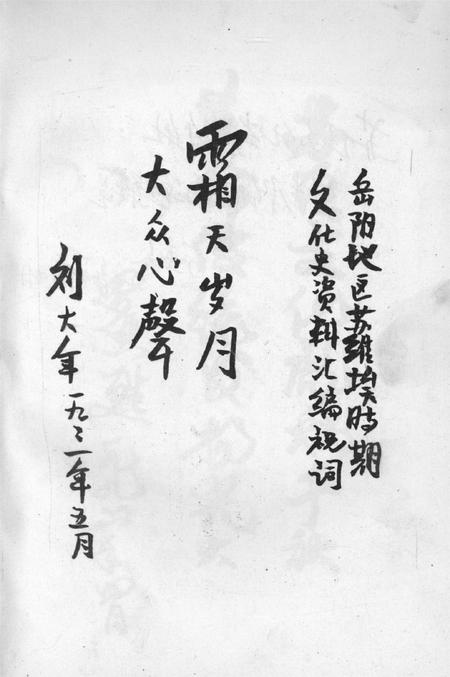 岳阳地区苏维埃時期
文化史资料汇编祝词
霜天岁月
大众心聲
刘大年一九九一年五月